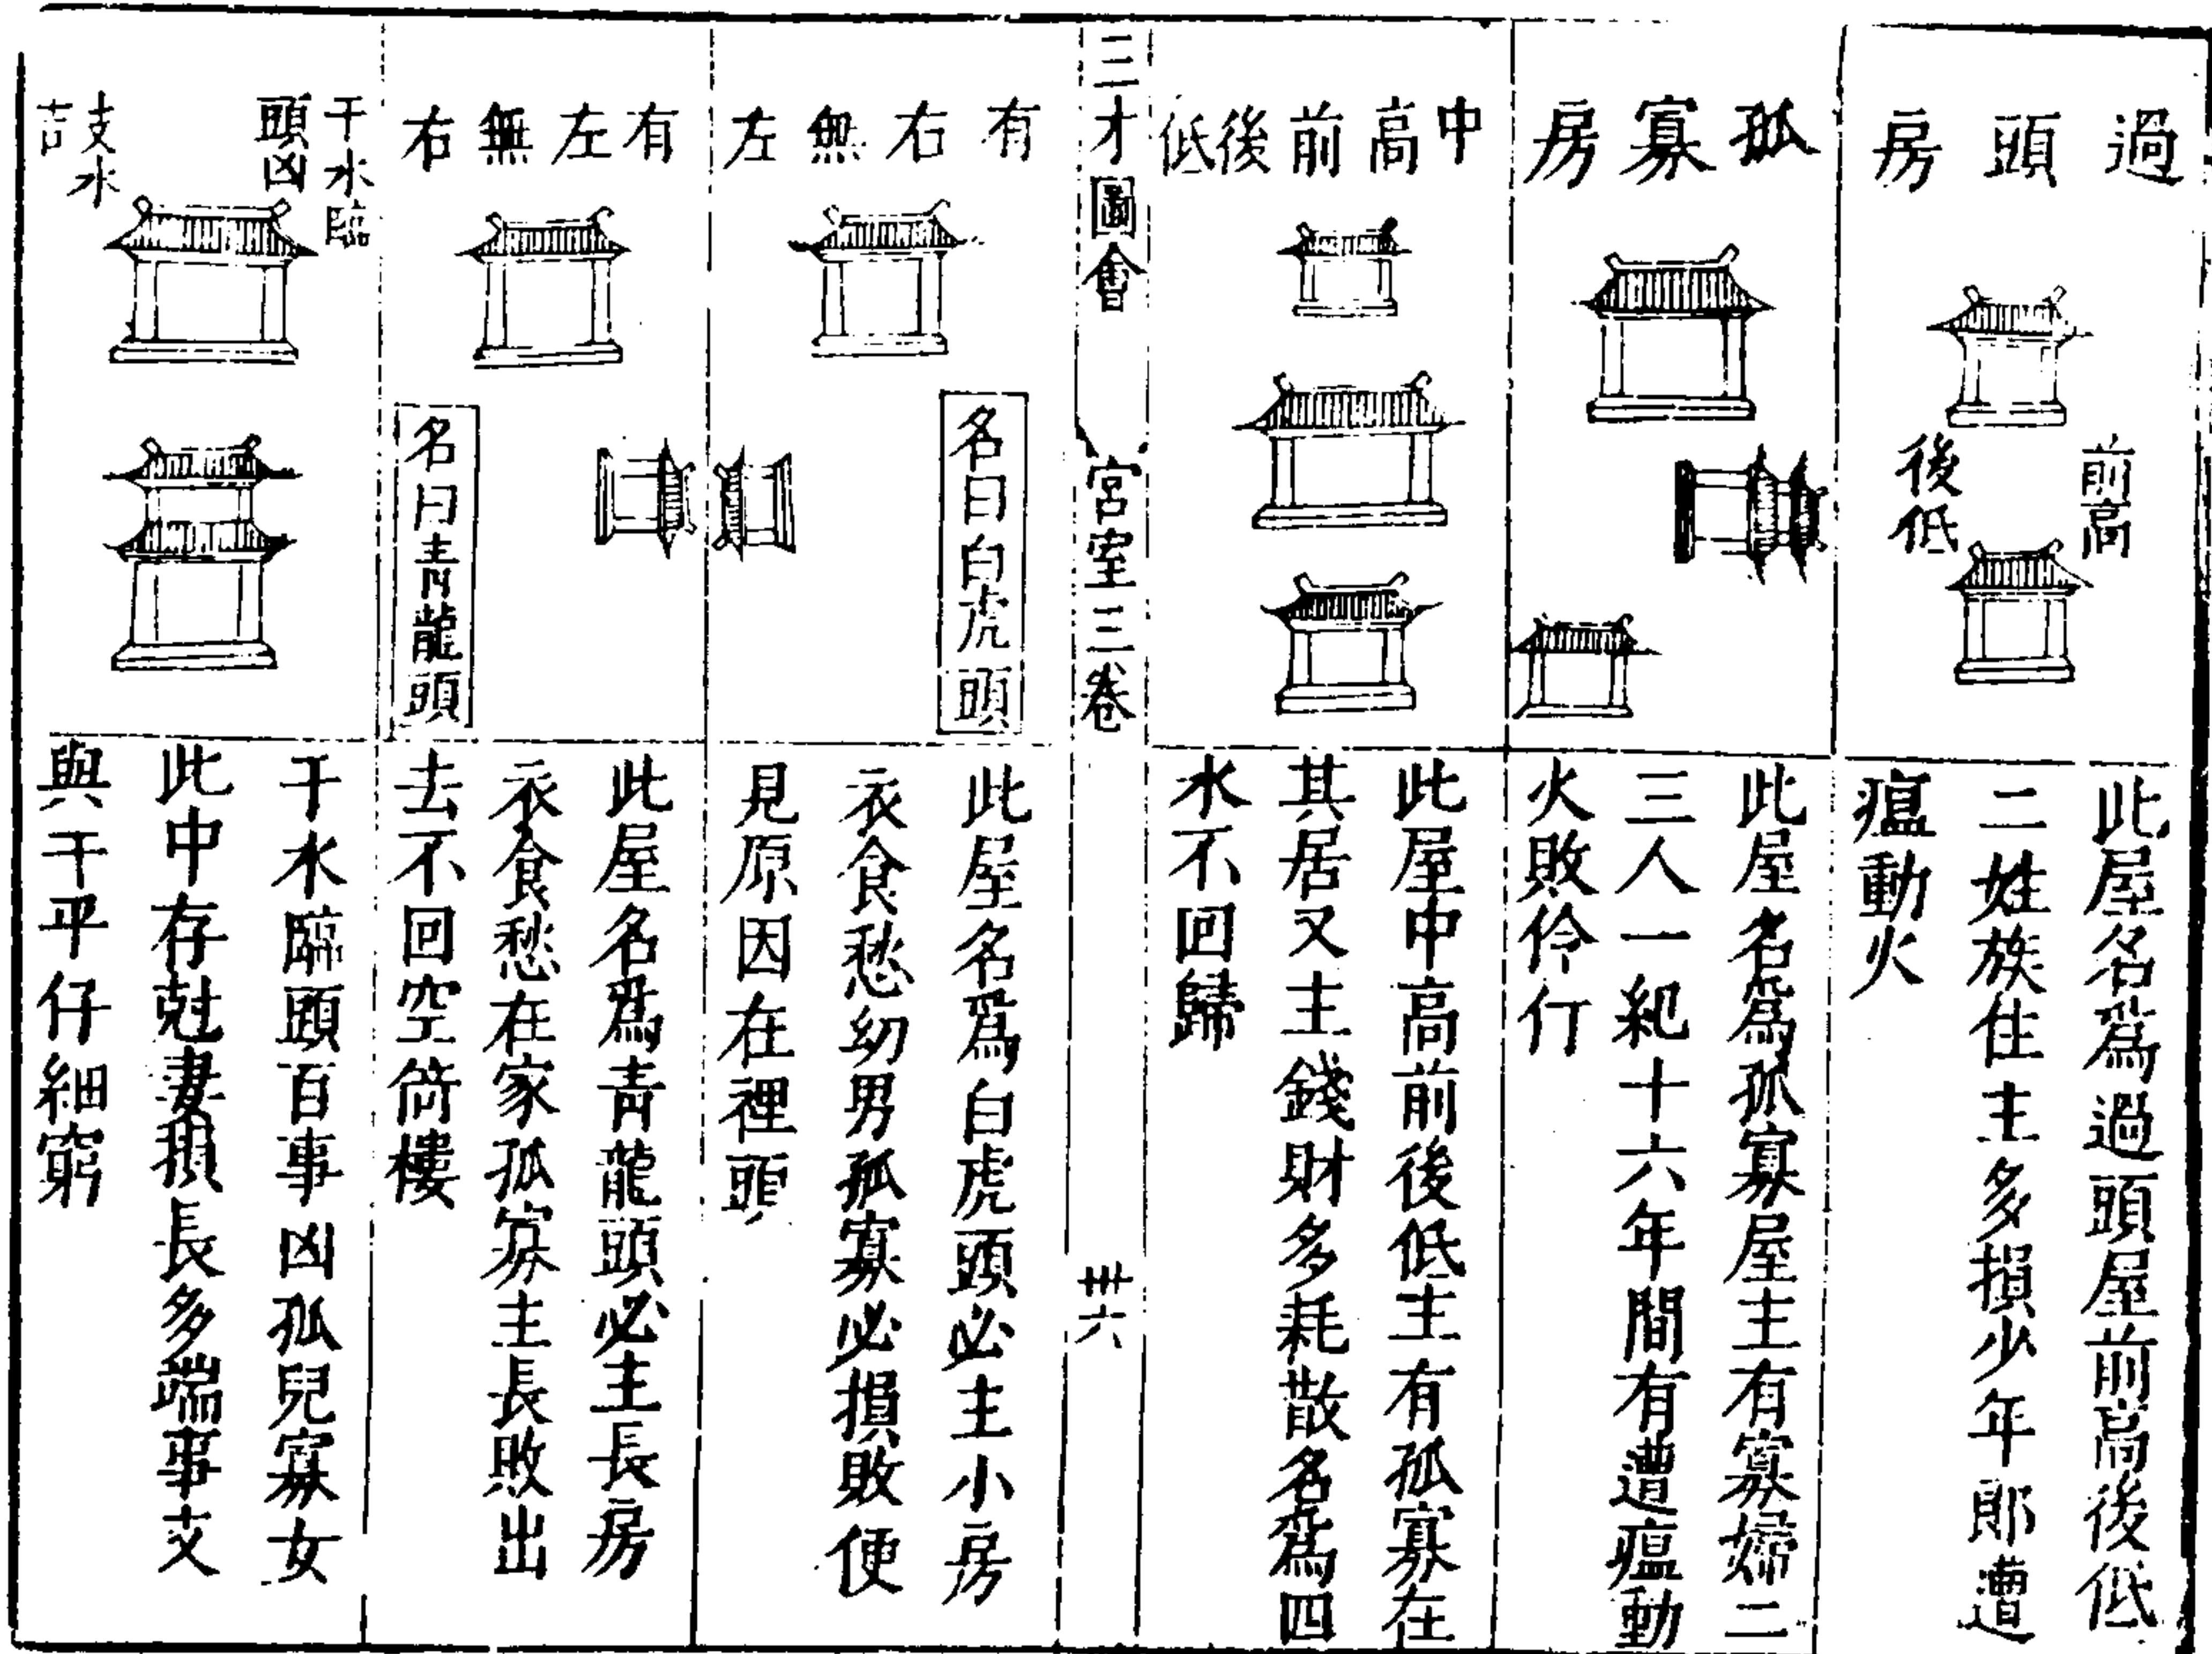 過頭房
前高
後低
此屋名爲過頭屋前高後低
二姓族住主多損少年郎遭
瘟動火
孤寡房
此屋名爲孤寡屋主有寡婦二
三人一紀十六年間有遭瘟動
火敗伶仃
中高前後低
此屋中高前後低主有孤寡在
其居又主錢財多耗散名爲四
水不回歸
三才圖會
宮室三卷
卅六
有右無左
名曰白虎頭
此屋名爲白虎頭必主小房
衣食愁幼男孤寡必損敗便
見原因在裡頭
有左無右
名曰青龍頭
此屋名爲青龍頭必主長房
衣食愁在家孤寡主長敗出
去不回空倚樓
干水臨
頭凶
支水
吉
干水臨頭百事凶孤兒寡女
此中存尅妻損長多端事支
與干平仔細窮